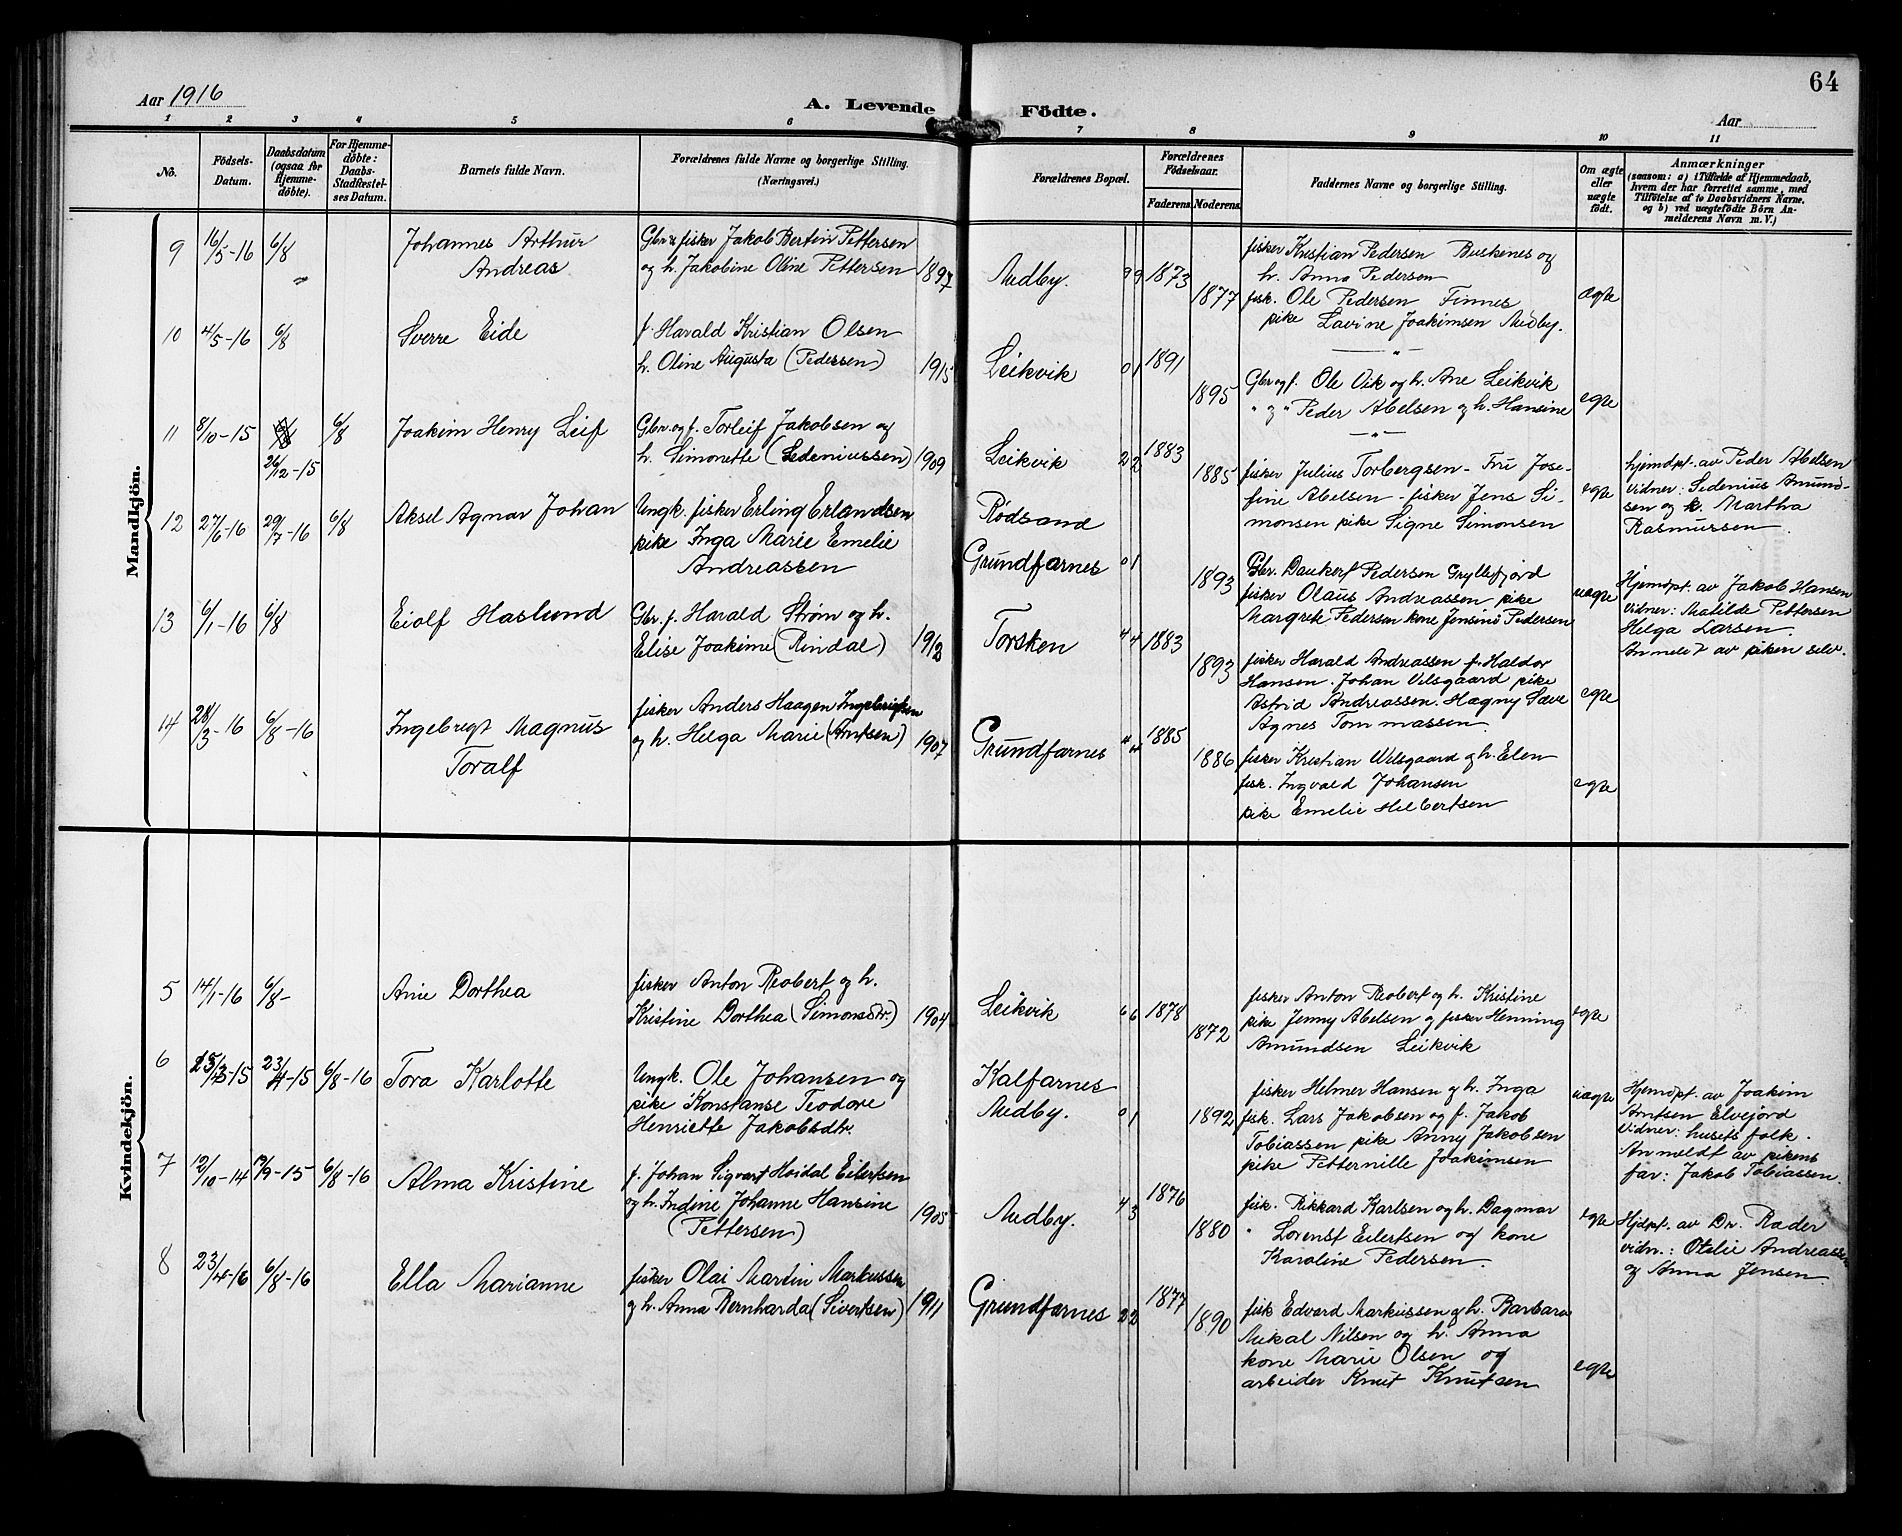 64
Aar 1916
A. Levende Födte.
Aar
1 2 3 4 5 6 7 8 9 10 11
No.
Födsels-Datum.
Daabsdatum (ogsaa for Hjemme-döbte).
For Hjemme-döbte: Daabs-Stadfæstel-ses Datum.
Barnets fulde Navn.
Forældrenes fulde Navne og borgerlige Stilling.
(Næringsvei.)
Forældrenes Bopæl.
Forældrenes Födselsaar.
Faderens. Moderens.
Faddernes Navne og borgerlige Stilling.
Om ægte eller uægte födt.
Anmærkninger
(saasom: a) i Tilfælde af Hjemmedaab,
hvem der har forrettet samme, med
Tilföielse af to Daabsvidners Navne.
og b) ved uægtefödte Börn An-
melderens Navn m. V.)
Mandkjön.
9 16/5-16 6/8
Johannes Arthur
Andreas
Gbr & fisker Jakob Bertin Pettersen
og h. Jakobine Oline Pettersen 1897
Medby. 9 9 1873
1877
fisker Kristian Pedersen Buskenes og
h. Anna Pedersen
fisk. Ole Pedersen Finnes
pike Lavine Joakimsen Medby.
Ægte
10 4/5-16 6/8
Sverre Eide
f. Harald Kristian Olsen
h. Oline Augusta (Pedersen) 1915
Leikvik 0 1 1891
1895
Gbr og f. Ole Vik og h. Ane Leikvik
" og " Peder Abelsen og h. Hansine
egte
11 8/10-15 26/12-15 6/8
Joakim Henry Leif
Gbr. og f. Torleif Jakobsen og
h. Simonette (Sedeniussen) 1909
Leikvik 2 2 1883
1885
fisker Julius Torbergsen - Fru Jose-
fine Abelsen - fisker Jens Si-
monsen pike Signe Simonsen
egte
hjemdpt. av Peder Abelsen
vidner: Sedenius Amund-
sen og k. Martha
Rasmussen
12 27/6-16 29/7-16 6/8
Aksel Agnar Johan
Ungk. fisker Erling Erlandsen
pike Inga Marie Emelie
Andreassen
Rödsand
Grundfarnes 0 1
1893
Gbr. Daukert Pedersen Gryllefjord
fisker Olaus Andreassen pike
Margrete Pedersen kone Jensine Pedersen
uægte
Hjemdpt. av Jakob Hansen
vidner: Matilde Pettersen
Helga Larsen.
Anmeldt av piken selv.
13 6/1-16 6/8
Eiolf Haslund
Gbr. f. Harald Strøm og h.
Elise Joakime (Rindal) 1912
Torsken 4 4 1883
1893
fisker Harald Andreassen f. Haldor
Hansen. Johan Vilsgaard pike
Astrid Andreassen. Hagny Sæve
Agnes Tommassen.
egte
14 28/3-16 6/8-16
Ingebrigt Magnus
Toralf
fisker Anders Haagen Ingebrigtsen
og h. Helga Marie (Arntsen) 1907
Grundfarnes 4 4 1885
1886
fisker Kristian Wilsgaard og h. Elen
fisk. Ingvald Johansen
pike Emelie Helbertsen
egte
Kvindekjön.
5 14/1-16 6/8-
Arne Dorthea
fisker Anton Reobert og h.
Kristine Dorthea (Simonsdtr.) 1904
Leikvik 6 6 1878
1872
fisker Anton Reobert og h. Kristine
pike Jenny Abelsen og fisker Henning
Amundsen Leikvik
egte
6 23/4-15 6/8-16
Tora Karlotte
Ungk. Ole Johansen og
pike Konstanse Teodore
Henriette Jakobsdtr.
Kalfarnes
Medby. 0 1
1892
fisker Helmer Hansen og h. Inga
fisk. Lars Jakobsen og f. Jakob
Tobiassen pike Anny Jakobsen
pike Petternille Joakimsen
uægte
Hjemdpt. av Joakim
Arntsen Elvejord
Vidner: husets folk.
Anmeldt av pikens
far: Jakob Tobiassen
7 12/10-14 19/9-15 6/8-16
Alma Kristine
f. Johan Sigvart Hoidal Eilertsen
og h. Indine Johanne Hansine
(Pettersen) 1905
Medby. 4 3 1876
1880
fisk. Rikkard Karlsen og h. Dagmar
" Lorenst Eilertsen og kone
Karoline Pedersen.
egte
Hjdpt. av Dr. Ræder
vidn.: Otelie Andreassen
og Anna Jensen.
8 23/4-16 6/8-16
Ella Marianne
fisker Olai Martin Markussen
og h. Anna Bernharda (Sivertsen) 1911
Grundfarnes 2 2 1877
1890
fisk Edvard Markussen og h. Barbara
Mikal Nilsen og h. Anna
kone Marie Olsen og
arbeider Knut Knutsen
egte